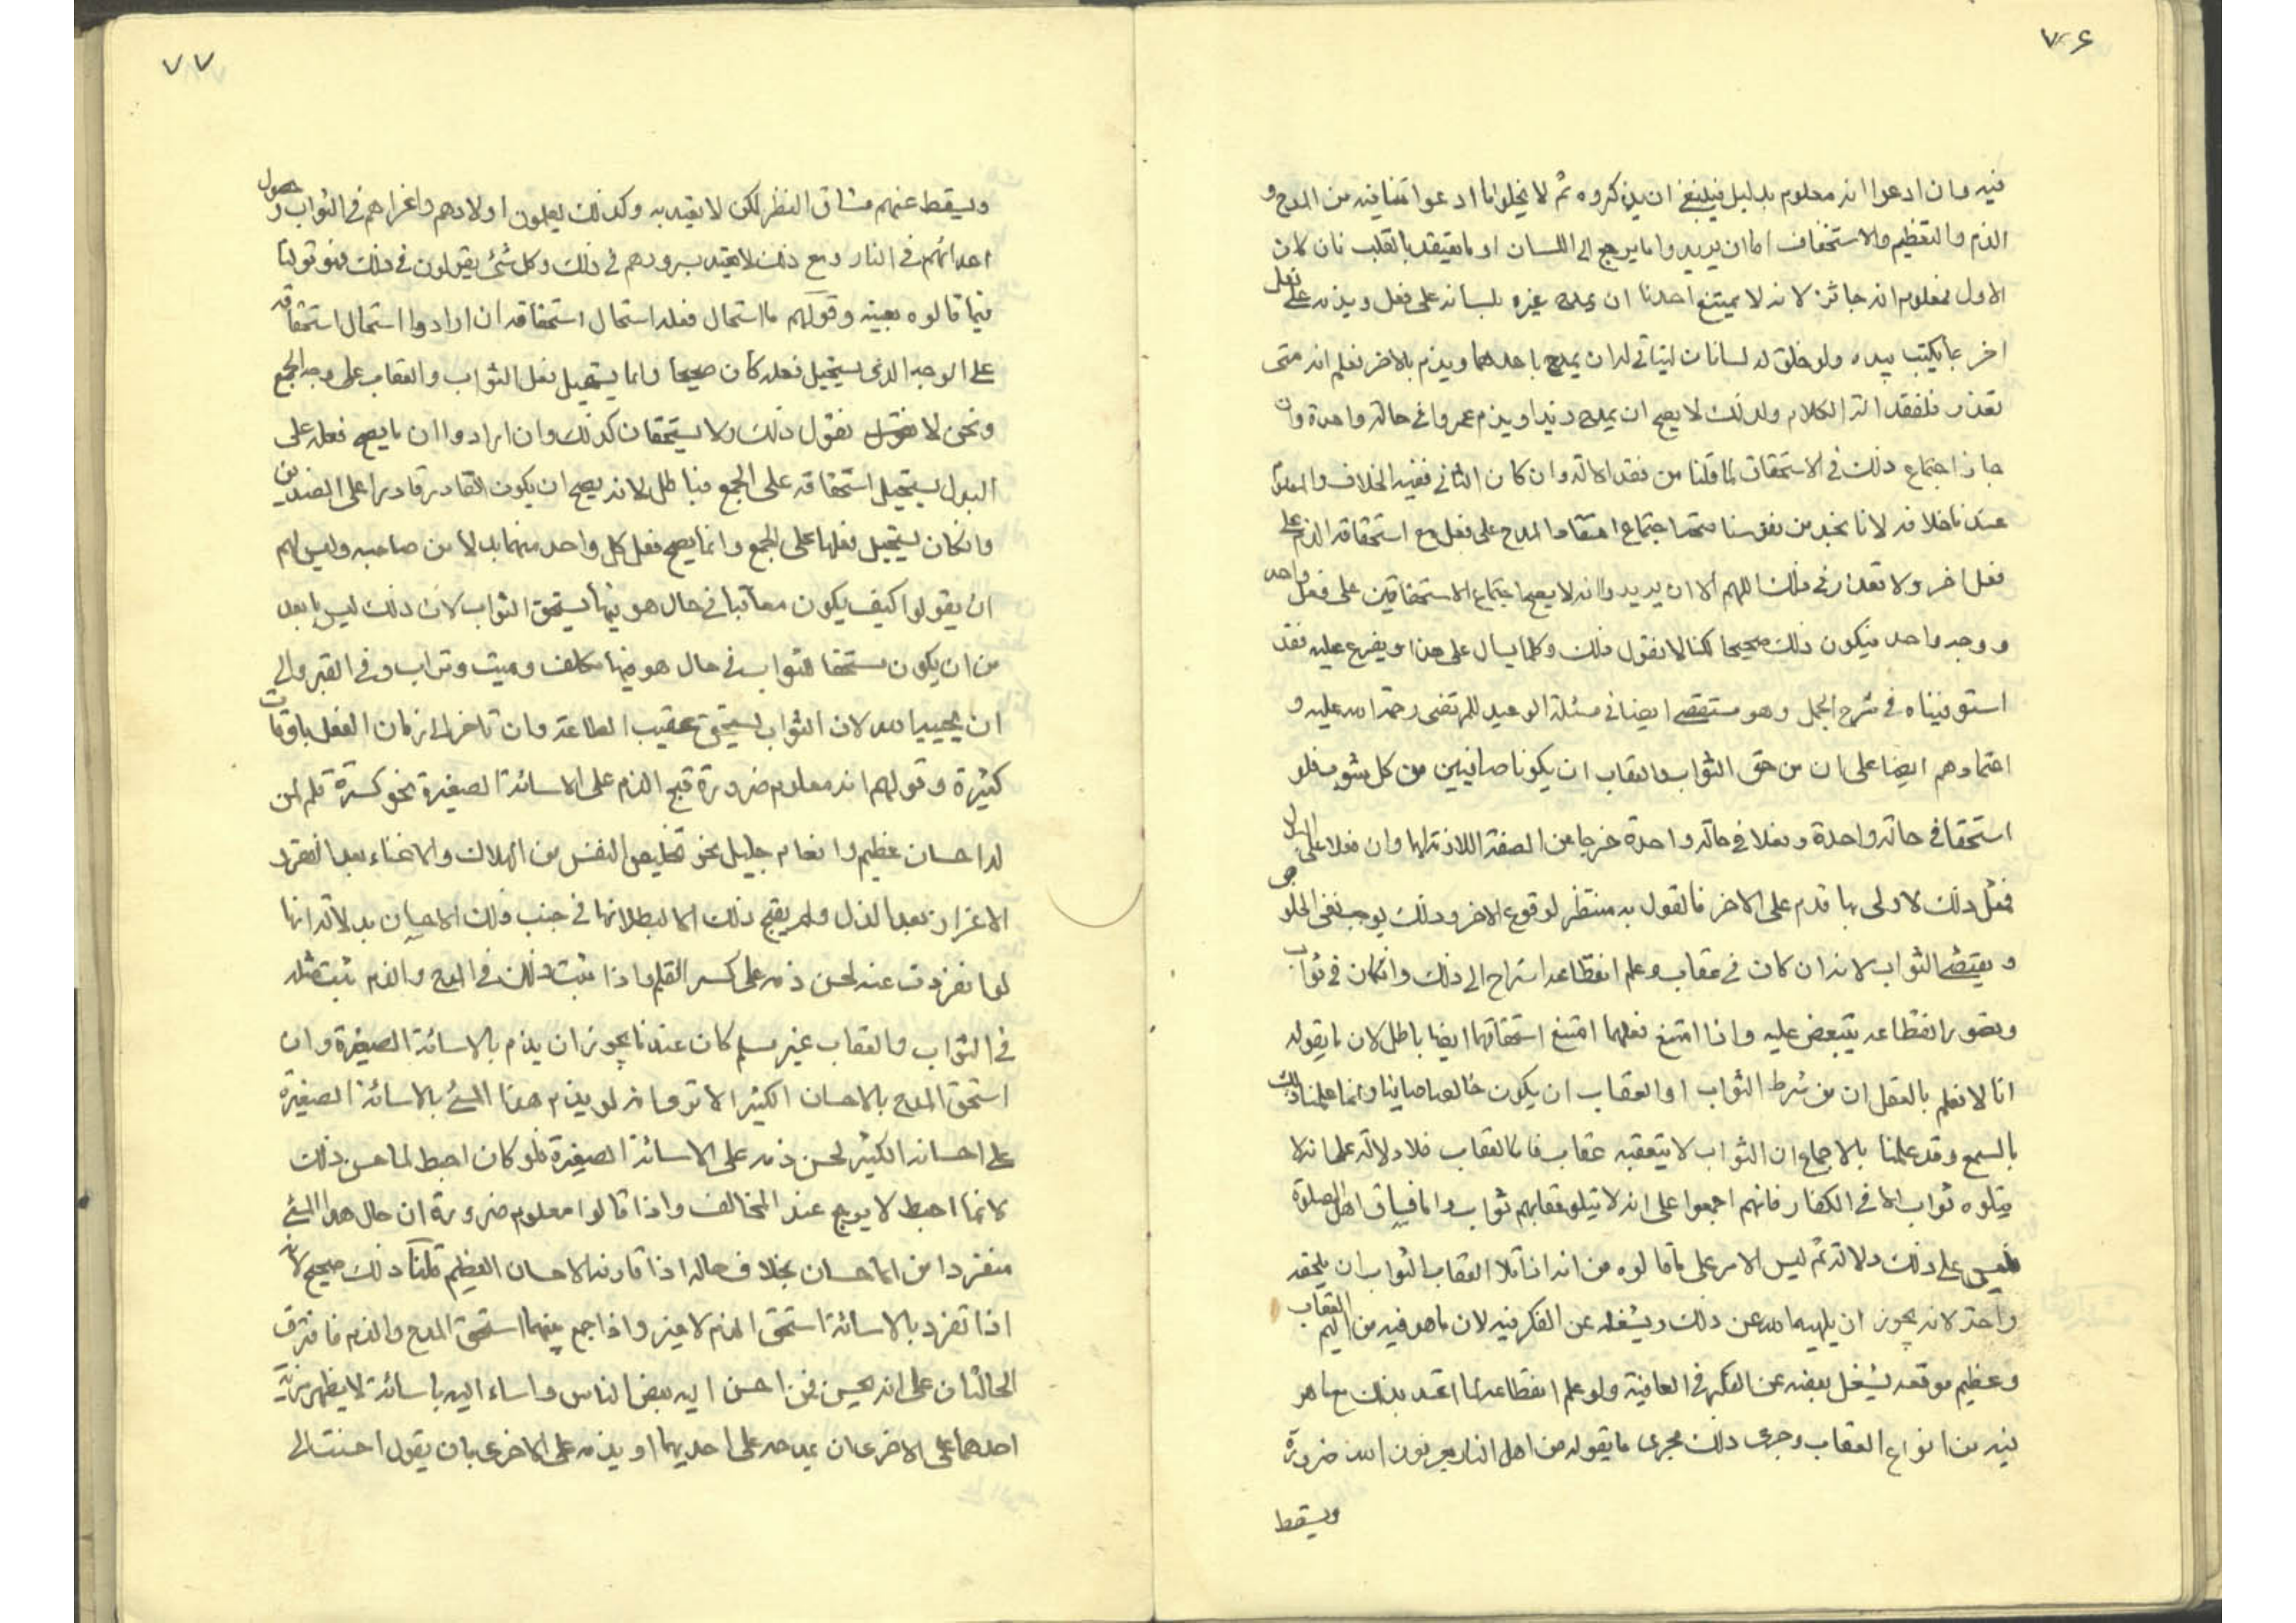 ٧٦
فيه وان ادعوا انه معلوم بدليل فينبغي ان يذكروه ثم لا يخلو اما ادعوا تنافيه من المدح و
الذم والتعظيم والاستخفاف اما ان يريدوا ما يرجع الى اللسان او ما يعتقد بالقلب فان كان
الاول فمعلوم انه جائز لانه لا يمتنع احدنا ان يمدح غيره بلسانه على فعل ويذمه على فعل
اخر بما يكتب بيده ولو خلق له لسانان ليتاتى له ان يمدح باحدهما ويذم بالاخر فعلم انه متى
تعذر فلفقد الة الكلام ولذلك لا يصح ان يمدح زيدا ويذم عمروا في حالة واحدة وان
جاز اجتماع ذلك في الاستحقاق لما قلنا من فقد الالة وان كان الثاني ففيه الخلاف والمعلوم
عندنا خلافه لانا نجد من نفوسنا صحة اجتماع اعتقاد المدح على فعل مع استحقاقه الذم على
فعل اخر ولا تعذر في ذلك اللهم الا ان يريدوا انه لا يصح اجتماع الاستحقاقين على فعل واحد
ووجه واحد فيكون ذلك صحيحا لكنا لا نقول ذلك وكلما يسال على هذا ويفرع عليه فقد
استوفيناه في شرح الجمل وهو مستقصى ايضا في مسئلة الوعيد للمرتضى رحمة الله عليه و
اعتمادهم ايضا على ان من حق الثواب والعقاب ان يكونا صافيين من كل شوب فلو
استحقا في حالة واحدة وفعلا في حالة واحدة خرجا من الصفة اللازمة لهما وان فعلا على البدل
فمثل ذلك لا ولى بها قدم على الاخر فالقول به منتظر لوقوع الاخر وذلك يوجب نفي الخلوص
ويقتضي الثواب لانه ان كان في عقاب وعلم انقطاعه استراح الى ذلك وان كان في ثواب
وتصور انقطاعه يتبعض عليه واذا امتنع فعلهما امتنع استحقاقهما ايضا باطل لان ما يقوله
انا لا نعلم بالعقل ان من شرط الثواب او العقاب ان يكون خالصا صافيا وانما علمنا ذلك
بالسمع وقد علمنا بالاجماع ان الثواب لا يتعقبه عقاب فاما العقاب فلا دلالة على انه لا
يتلوه ثواب الا في الكفار فانهم اجمعوا على انه لا يتلو عقابهم ثواب واما فساق اهل الصلوة
فليس على ذلك دلالة ثم ليس الامر على ما قالوه من انه اذا تلا العقاب الثواب ان يلحقه
راحة لانه يجوز ان يلهيه الله عن ذلك ويشغله عن الفكر فيه لان ما هو فيه من اليم العقاب
وعظيم موقعه يشغل بعضه عن الفكر في العافية ولو علم انقطاعه لما اعتد بذلك مع ما هو
فيه من انواع العقاب وجرى ذلك مجرى ما يقوله من اهل النار يعرفون الله ضرورة
ويسقط
٧٧
ويسقط عنهم مشاق النظر لكن لا يعتد به وكذلك يعلمون اولادهم واعزاهم في الثواب وحصول
اعدائهم في النار ومع ذلك لا يعتد بسرورهم في ذلك وكل شئ يقولون في ذلك فهو قولنا
فيما قالوه بعينه وقولهم ما استحال فعله استحال استحقاقه ان ارادوا استحال استحقاقه
على الوجه الذي يستحيل فعله كان صحيحا وانما يستحيل فعل الثواب والعقاب على وجه الجمع
ونحن لا نقول ذلك ولا يستحقان كذلك وان ارادوا ان ما يصح فعله على
البدل يستحيل استحقاقه على الجمع فباطل لانه يصح ان يكون القادر قادرا على الضدين
وان كان يستحيل فعلهما على الجمع وانما يصح فعل كل واحد منهما بدلا من صاحبه وليس لهم
ان يقولوا كيف يكون معاقبا في حال هو فيها يستحق الثواب لان ذلك ليس بابعد
من ان يكون مستحقا للثواب في حال هو فيها مكلف وميت وتراب وفي القبر والى
ان يحييه الله لان الثواب يستحق عقيب الطاعة وان تاخر الى زمان الفعل باوقات
كثيرة وقولهم انه معلوم ضرورة قبح الذم على الاسائة الصغيرة نحو كسرة قلم لمن
له احسان عظيم وانعام جليل نحو تخليص النفس من الهلاك والاغناء بعد الفقر و
الاعزاز بعد الذل ولم يقبح ذلك الا لبطلانها في جنب ذلك الاحسان بدلالة انها
لو انفردت عنه لحسن ذمه على كسر القلم واذا ثبت ذلك في المدح والذم ثبت مثله
في الثواب والعقاب غير مسلم كان عندنا يجوز ان يذم بالاسائة الصغيرة وان
استحق المدح بالاحسان الكثير الا ترى انه لو يذم هذا المسئ بالاسائة الصغيرة
على احسانه الكثير لحسن ذمه على الاسائة الصغيرة فلو كان احبط لما حسن ذلك
لان ما احبط لا يرجع عند المخالف واذا قالوا معلوم ضرورة ان حال هذا المسئ
منفردا من الاحسان بخلاف حاله اذا قارنه الاحسان العظيم قلنا ذلك صحيح لانه
اذا تفرد بالاسائة استحق الذم لا غير واذا جمع بينهما استحق المدح والذم فافترق
الحالتان على انه يحسن فمن احسن اليه بعض الناس واساء اليه باسائة لا يظهر مزية
احدهما على الاخرى ان يمدحه على احديهما ويذمه على الاخرى بان يقول احسنت الي